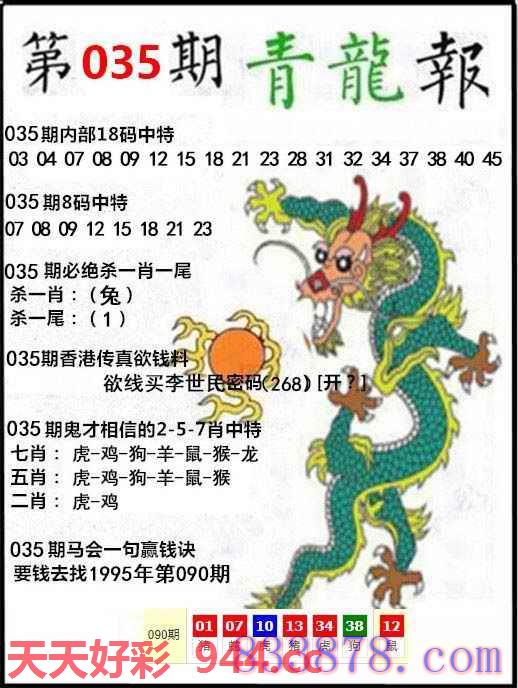 第035期青龍報
035期内部18码中特
03 04 07 08 09 12 15 18 21 23 28 31 32 34 37 38 40 45
035期8码中特
07 08 09 12 15 18 21 23
035期必绝杀一肖一尾
杀一肖：(兔)
杀一尾：(1)
035期香港传真欲钱料
欲线买李世民密码(268)[开？]
035期鬼才相信的2-5-7肖中特
七肖：虎-鸡-狗-羊-鼠-猴-龙
五肖：虎-鸡-狗-羊-鼠-猴
二肖：虎-鸡
035期马会一句赢钱诀
要钱去找1995年第090期
090期 01 07 10 13 34 38 12
猪 虎 猪 虎 狗 鼠
天天好彩 944.cc
838878.com